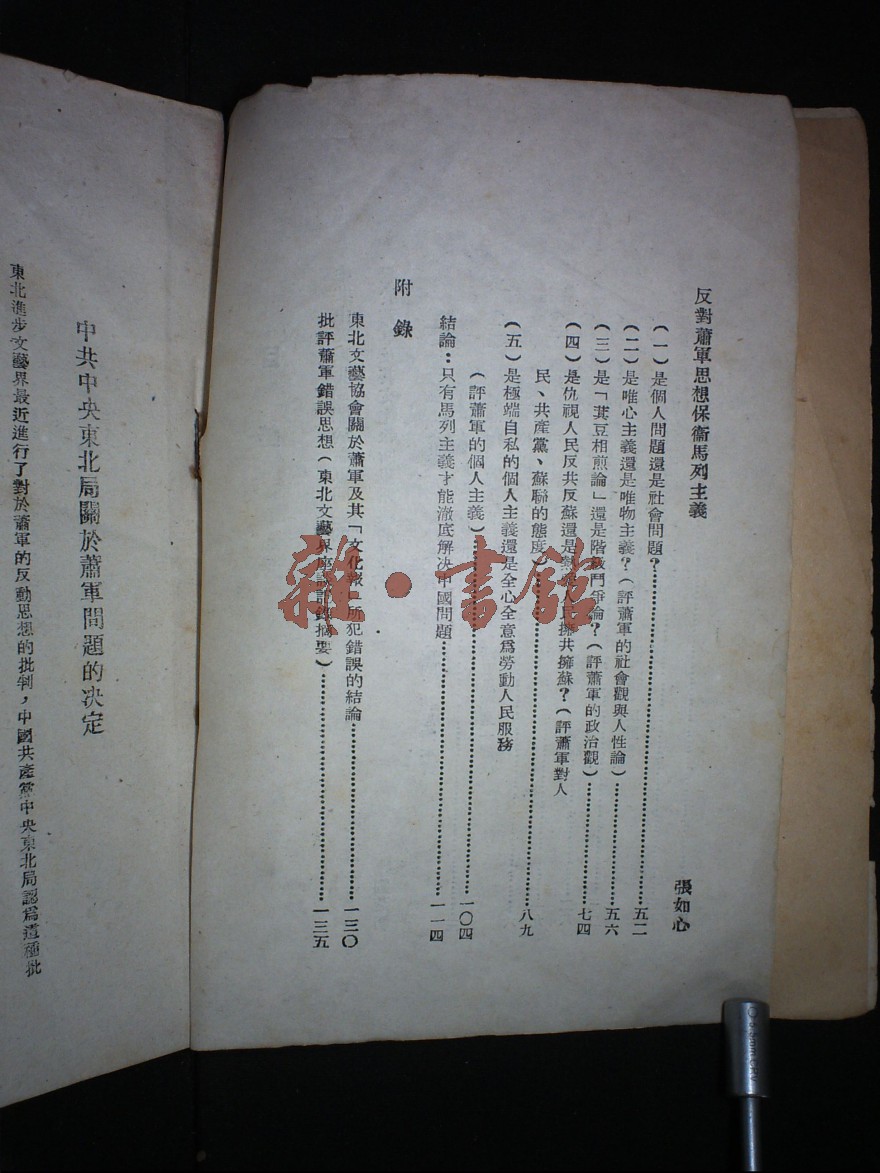 反對蕭軍思想保衞馬列主義
張如心
(一)是個人問題還是社會問題?…………五二
(二)是唯心主義還是唯物主義?(評蕭軍的社會觀與人性論)…………五六
(三)是「萁豆相煎論」還是階級鬥爭論?(評蕭軍的政治觀)…………七四
(四)是仇視人民反共反蘇還是熱愛人民擁共擁蘇?(評蕭軍對人
民、共產黨、蘇聯的態度)…………八九
(五)是極端自私的個人主義還是全心全意爲勞動人民服務
(評蕭軍的個人主義)…………一〇四
結論:只有馬列主義才能澈底解决中國問題…………一一四
附錄
東北文藝協會關於蕭軍及其「文化報」所犯錯誤的結論…………一三〇
批評蕭軍錯誤思想(東北文藝界座談記錄摘要)…………一三五
中共中央東北局關於蕭軍問題的决定
東北進步文藝界最近進行了對於蕭軍的反動思想的批判,中國共產黨中央東北局認爲這種批
雜·書館